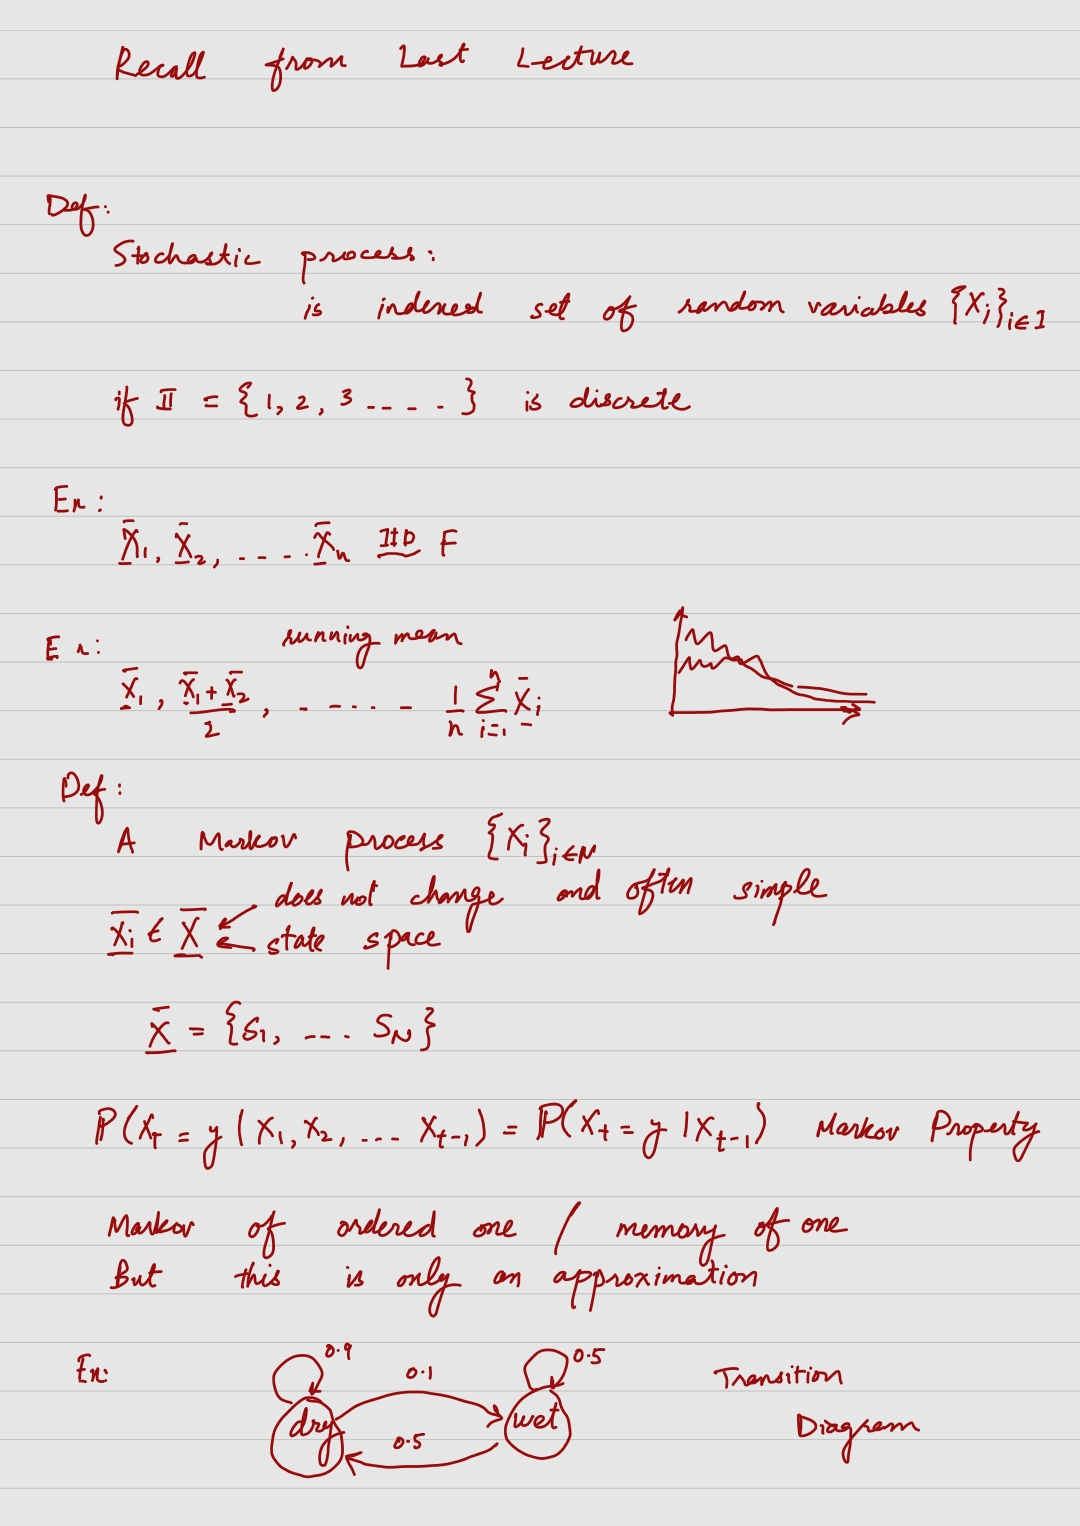 Recall from Last Lecture
Def:
Stochastic process:
is indexed set of random variables {X_i}_{i∈I}
if II = {1, 2, 3 - - - - } is discrete
Ex:
X̲̄_1, X̲̄_2, - - - - X̲̄_n IID F
Ex: running mean
X̲̄_1, (X̲̄_1 + X̲̄_2)/2, - - - - - - 1/n Σ_{i=1}^{n} X̲̄_i
Def:
A Markov process {X_i}_{i∈N}
does not change and often simple
X̲̄_i ∈ X̲̄ state space
X̲̄ = {S_1, - - - S_N}
P(X_T = y | X_1, X_2, - - - X_{t-1}) = P(X_t = y | X_{t-1}) Markov Property
Markov of ordered one / memory of one
But this is only an approximation
Ex: 0.9 0.1 0.5 Transition
dry wet Diagram
0.5